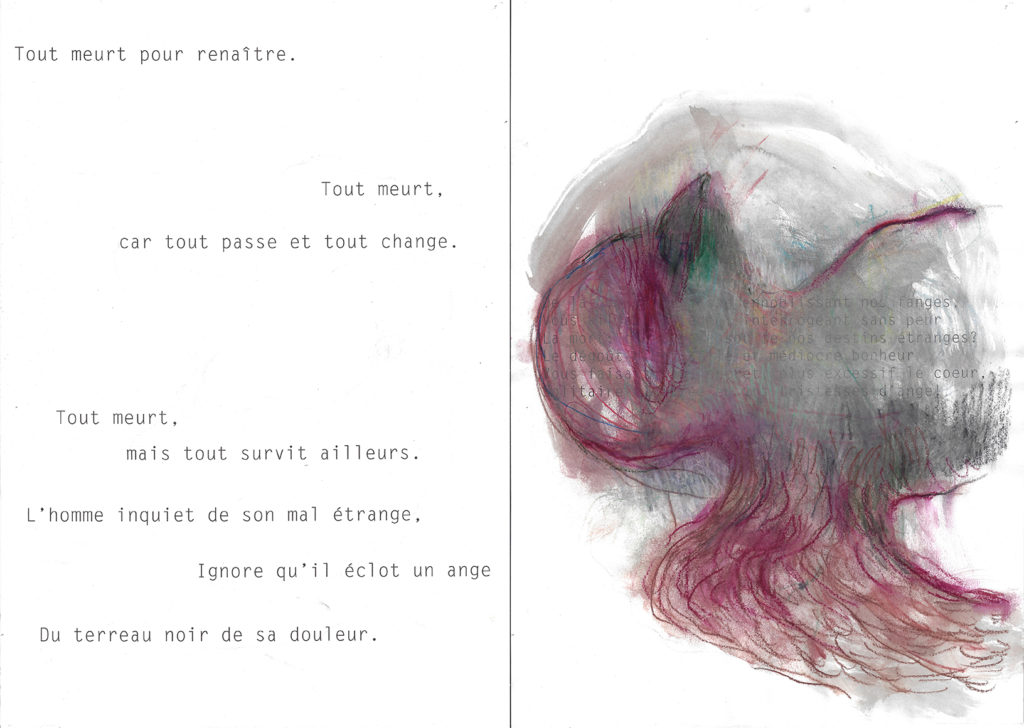 Tout meurt pour renaître.
Tout meurt,
car tout passe et tout change.
Tout meurt,
mais tout survit ailleurs.
L'homme inquiet de son mal étrange,
Ignore qu'il éclot un ange
Du terreau noir de sa douleur.
nos fanges,
interrogeant sans peur
nos destins étranges?
Le médiocre bonheur
plus excessif le coeur,
d'ange!